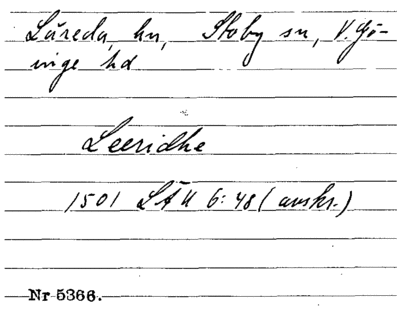 Lüreda, hn, Stoby sn, V. Gö-
inge hd
Leeridhe
1501 LÄU 6:48 (avskr.)
Nr 5366.